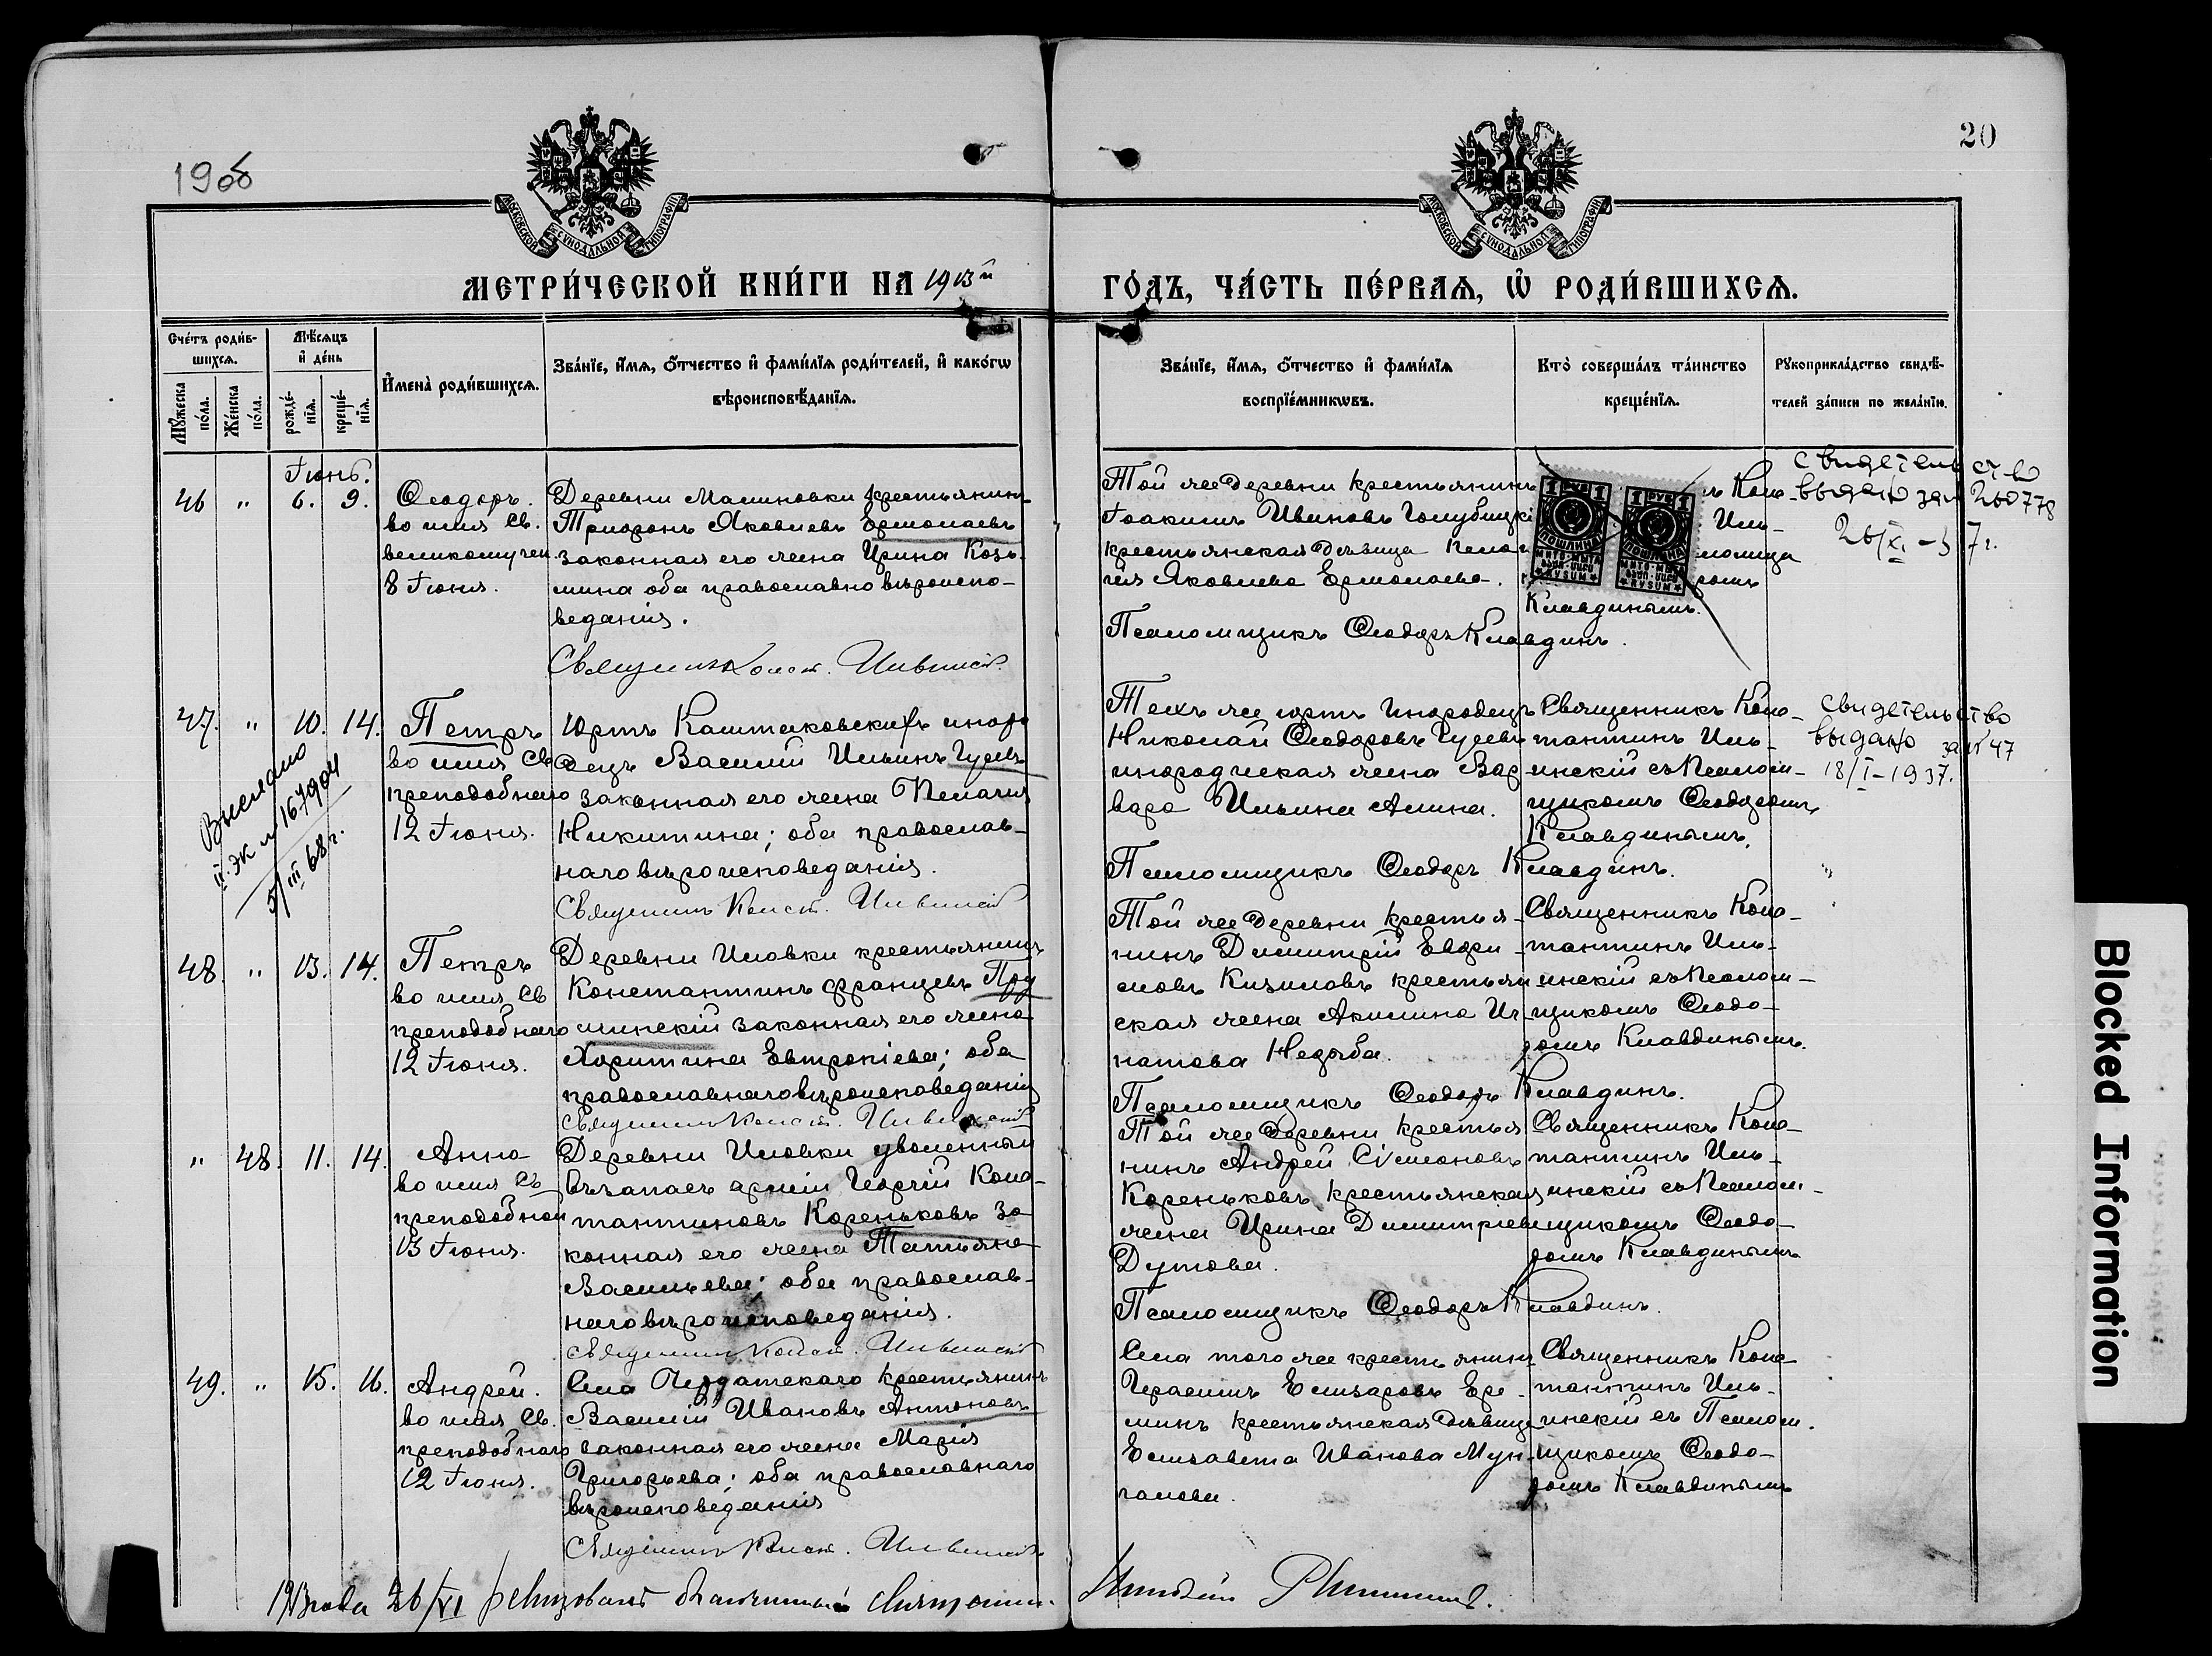 190б
20
МОСКОВСКОЙ СѴНОДАЛЬНОЙ ТИПОГРАФІИ
МОСКОВСКОЙ СѴНОДАЛЬНОЙ ТИПОГРАФІИ
МЕТРИ́ЧЕСКОЙ КНИ́ГИ НА 1913й
ГО́ДЪ, ЧА́СТЬ ПЕ́РВАѦ, Ѡ҆ РОДИ́ВШИХСѦ.
Сче́тъ роди́в-
шихсѧ.
Мꙋ́жеска по́ла.
Же́нска по́ла.
Мѣ́сѧцъ
и҆ де́нь
рожде́-
нїѧ.
креще́-
нїѧ.
И҆мена̀ роди́вшихсѧ.
Зва́нїе, и҆́мѧ, ѻ҆́тчество и҆ фами́лїѧ роди́телей, и҆ како́гѡ
вѣроисповѣ́данїѧ.
Зва́нїе, и҆́мѧ, ѻ҆́тчество и҆ фами́лїѧ
воспрїе́мникѡвъ.
Кто̀ соверша́лъ та́инство
креще́нїѧ.
Рꙋкоприкла́дство свидѣ́-
телей за́писи по жела́нїю.
Іюнь.
46 " 6. 9.
Ѳеодоръ.
во имя Св.
великомучен.
8 Іюня.
Деревни Малиновки крестьянинъ
Трифонъ Яковлевъ Ермолаевъ
законная его жена Ирина Козь-
мина оба православно вѣроиспо-
веданія.
Священ. Конст. Ильинскій
Той же деревни крестьянинъ
Іоакимъ Ивановъ Голубицкі
крестьянская дѣвица Пелаг
гея Яковлева Ермолаева.
ъ Конс-
Иль-
ломщи
ромъ
Клавдинымъ.
1 РУБ 1
ПОШЛИНА
1 РУБ 1
ПОШЛИНА
Псаломщикъ Ѳеодоръ Клавдинъ.
Свидетельство
выдано за № 260778
26/XI-37 г.
47. " 10. 14.
Петръ
во имя Св
преподобнаго
12 Іюня.
Юртъ Каштаковскихъ иноро
децъ Василій Ильинъ Гусевъ
законная его жена Пелагія
Никитина; оба православ-
наго вѣроисповеданія.
Священникъ Конст. Ильинскій
Выслано
II. эк № 167904
5/III 68 г.
Техъ же юртъ инородецъ
Николай Ѳеодоровъ Гусевъ
инородческая жена Вар
вара Ильина Алина.
Священникъ Конс-
тантинъ Иль-
инскій съ Псалом-
щикомъ Ѳеодоромъ
Клавдинымъ.
Псаломщикъ Ѳеодоръ Клавдинъ.
Свидетельство
выдано за № 47
18/I-1937.
48. " 13. 14.
Петръ
во имя Св
преподобнаго
12 Іюня.
Деревни Иловки крестьянинъ
Константинъ Францевъ Пру
шинскій законная его жена
Харитина Евтропіева; оба
православнаго вѣроисповеданія
Священникъ Конст. Ильинскій
Той же деревни крестья-
нинъ Димитрій Евфи-
мовъ Кизиловъ крестьян
ская жена Акилина Иг-
натова Недыба.
Священникъ Конс-
тантинъ Иль-
инскій съ Псалом-
щикомъ Ѳеодо-
ромъ Клавдинымъ.
Псаломщикъ Ѳеодоръ Клавдинъ.
" 48. 11. 14.
Анна
во имя Св
преподобной
13 Іюня.
Деревни Иловки уволенный
въ запасъ арміи Георгій Конс-
тантиновъ Кореньковъ за
конная его жена Татьяна
Васильева; оба православ-
наго вѣроисповеданія.
Священникъ Конст. Ильинскій
Той же деревни крестья
нинъ Андрей Сімеоновъ
Кореньковъ крестьянская
жена Ирина Димитріева
Дутова.
Священникъ Конс-
тантинъ Иль-
инскій съ Псалом-
щикомъ Ѳеодо-
ромъ Клавдинымъ
Псаломщикъ Ѳеодоръ Клавдинъ.
49. " 15. 16.
Андрей.
во имя Св.
преподобнаго
12 Іюня.
Села Чердатскаго крестьянинъ
Василій Ивановъ Антоновъ
законная его жена Марія
Григорьева; оба православнаго
вѣроисповеданія
Священникъ Конст. Ильинскій
Села того же крестьянинъ
Герасимъ Елизаровъ Ере-
минъ крестьянская дѣвица
Елизавета Иванова Мун-
галова.
Священникъ Конс-
тантинъ Иль-
инскій съ Псалом.
щикомъ Ѳеодо-
ромъ Клавдинымъ
1913 года 26/VI ревизовалъ благочинный священникъ
Blocked Information